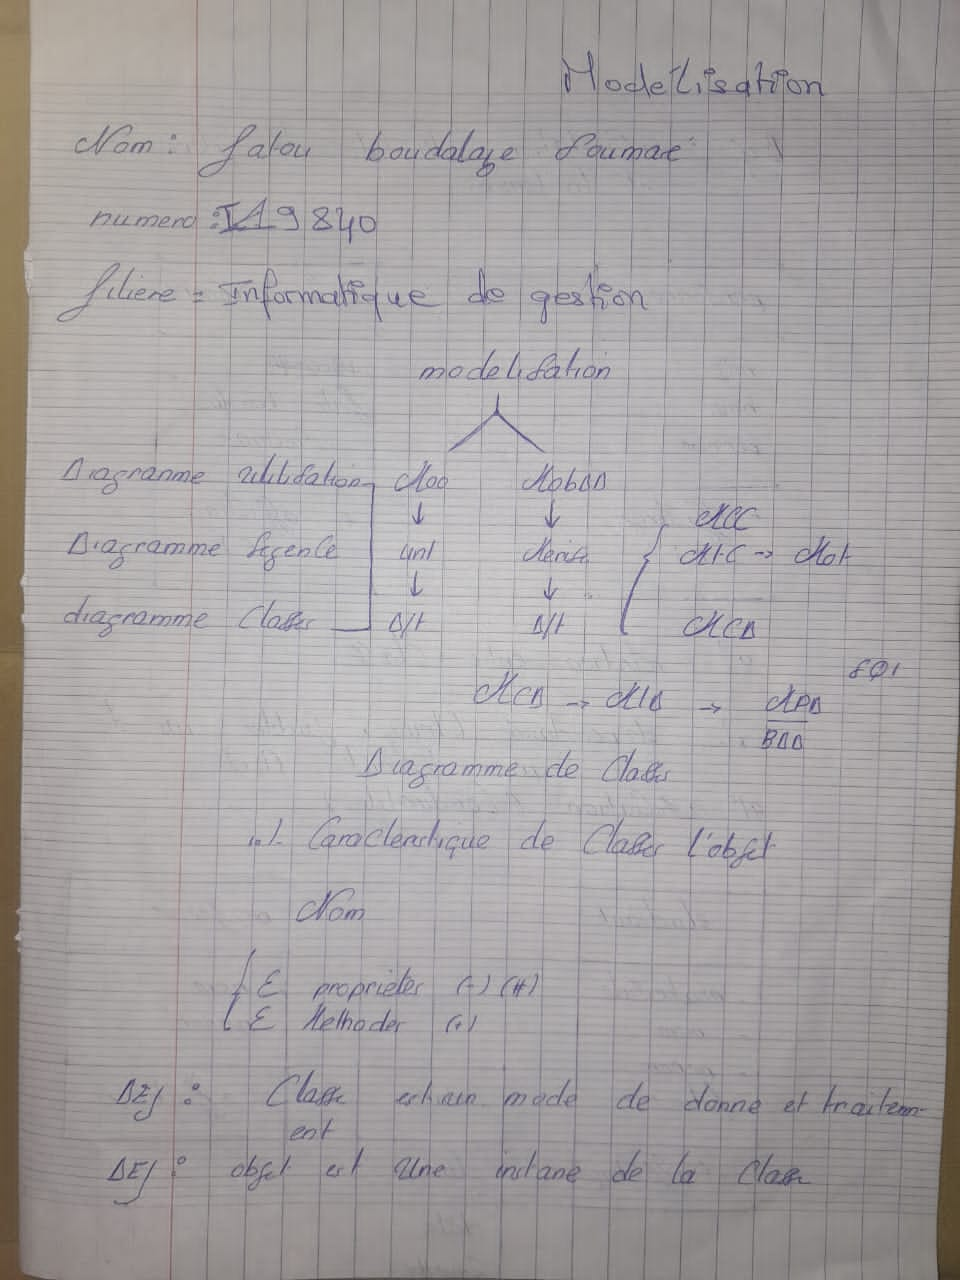 Modelisation
Nom: fatou boudalaye Soumare
numero: I19840
filiere = Informatique de gestion
modelisation
Diagramme utilisation Moo MobDD
MCC
Diagramme seqence uml Merise MTC → Mot
diagramme Classe D/t D/t MCD
SQl
MCD → MLD → MPD
BDD
Diagramme de Classe
1. Caracteristique de Classes l'objet
Nom
Σ proprietes (-) (#)
Σ Methodes (+)
DEf : Classe est un mode de donne et traitem-
ent
DEf : objet est une instane de la Classe